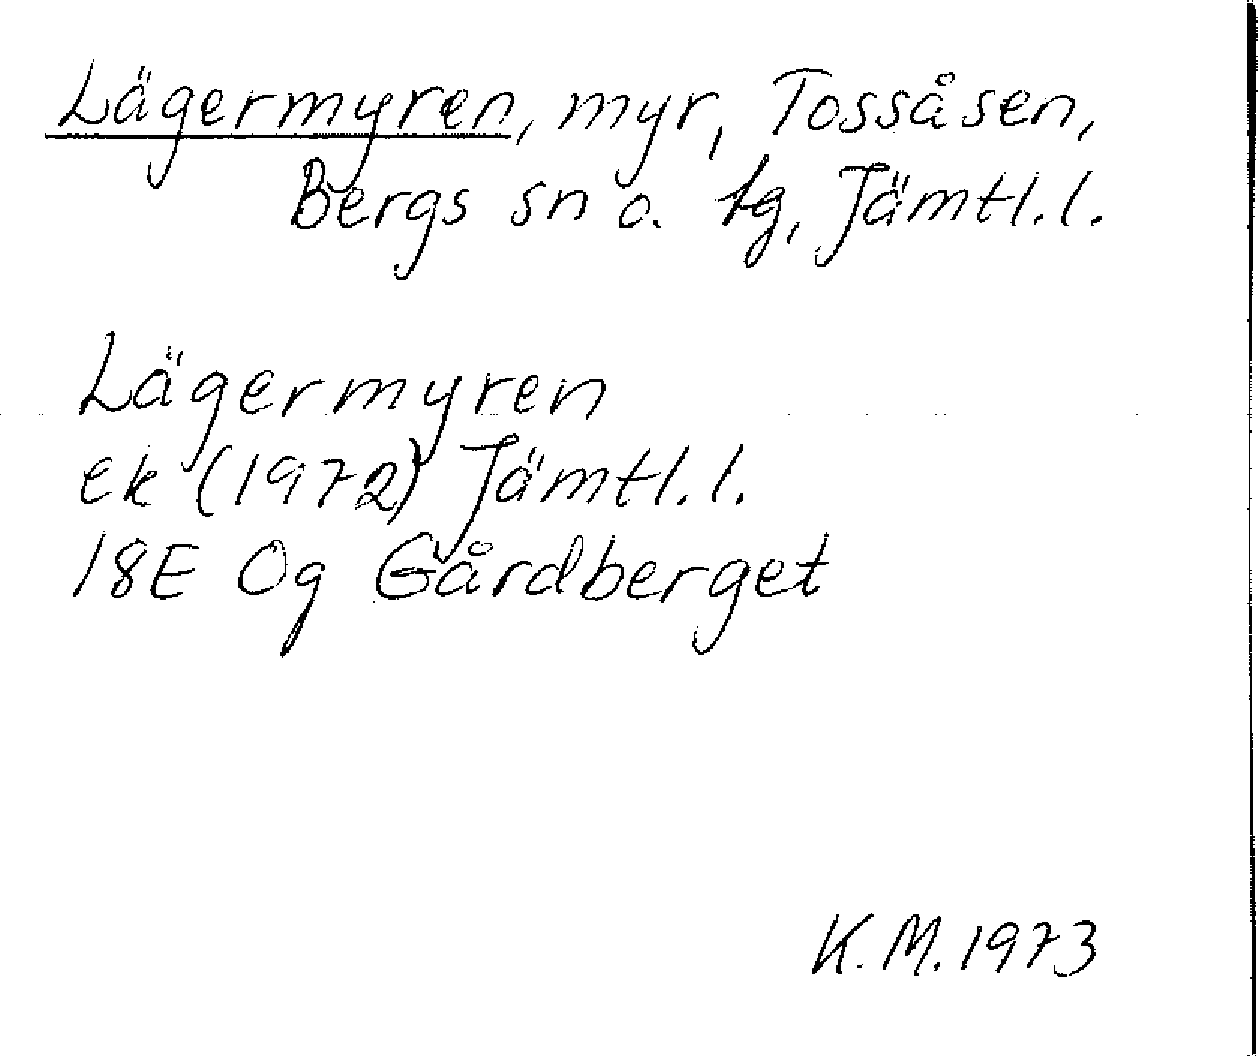 Lägermyren, myr, Tossåsen,
Bergs sn o. tg, Jämtl. l.
Lägermyren
ek (1972) Jämtl. l.
18E Og Gårdberget
K. M. 1973